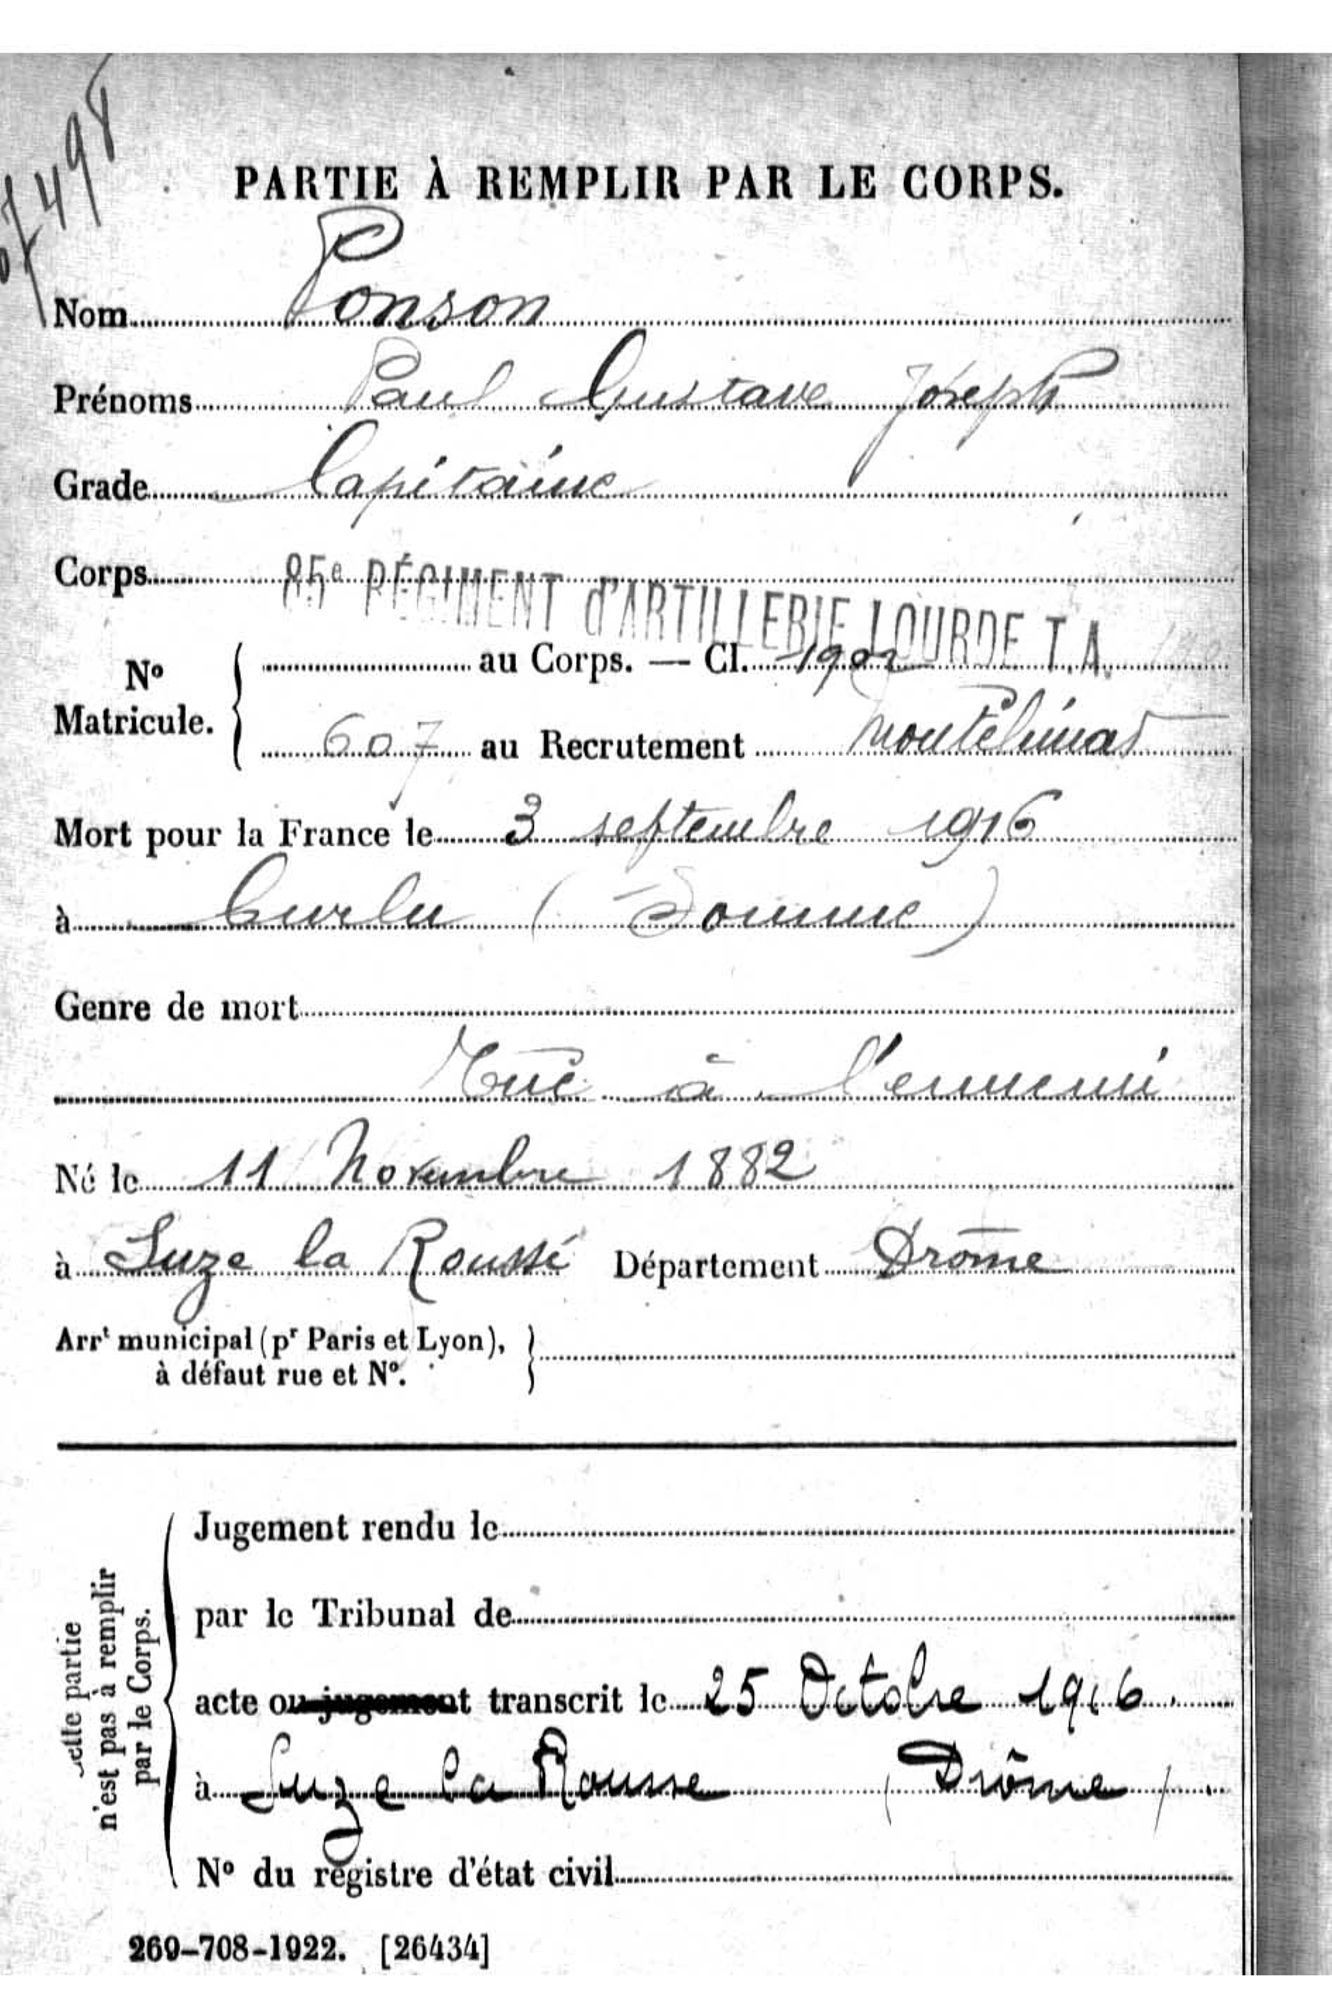 PARTIE À REMPLIR PAR LE CORPS.
Nom Ponson
Prénoms Paul Gustave Joseph
Grade Capitaine
Corps 85e RÉGIMENT d'ARTILLERIE LOURDE T.A.
No Matricule. { au Corps. — Cl. 1902
607 au Recrutement Montélimar
Mort pour la France le 3 septembre 1916
à Curlu (Somme)
Genre de mort
Tué à l'ennemi
Né le 11 Novembre 1882
à Suze la Rousse Département Drôme
Arrt municipal (pr Paris et Lyon), }
à défaut rue et No.
Cette partie
n'est pas à remplir
par le Corps.
Jugement rendu le
par le Tribunal de
acte ou jugement transcrit le 25 Octobre 1916.
à Suze la Rousse (Drôme).
No du registre d'état civil
269-708-1922. [26434]